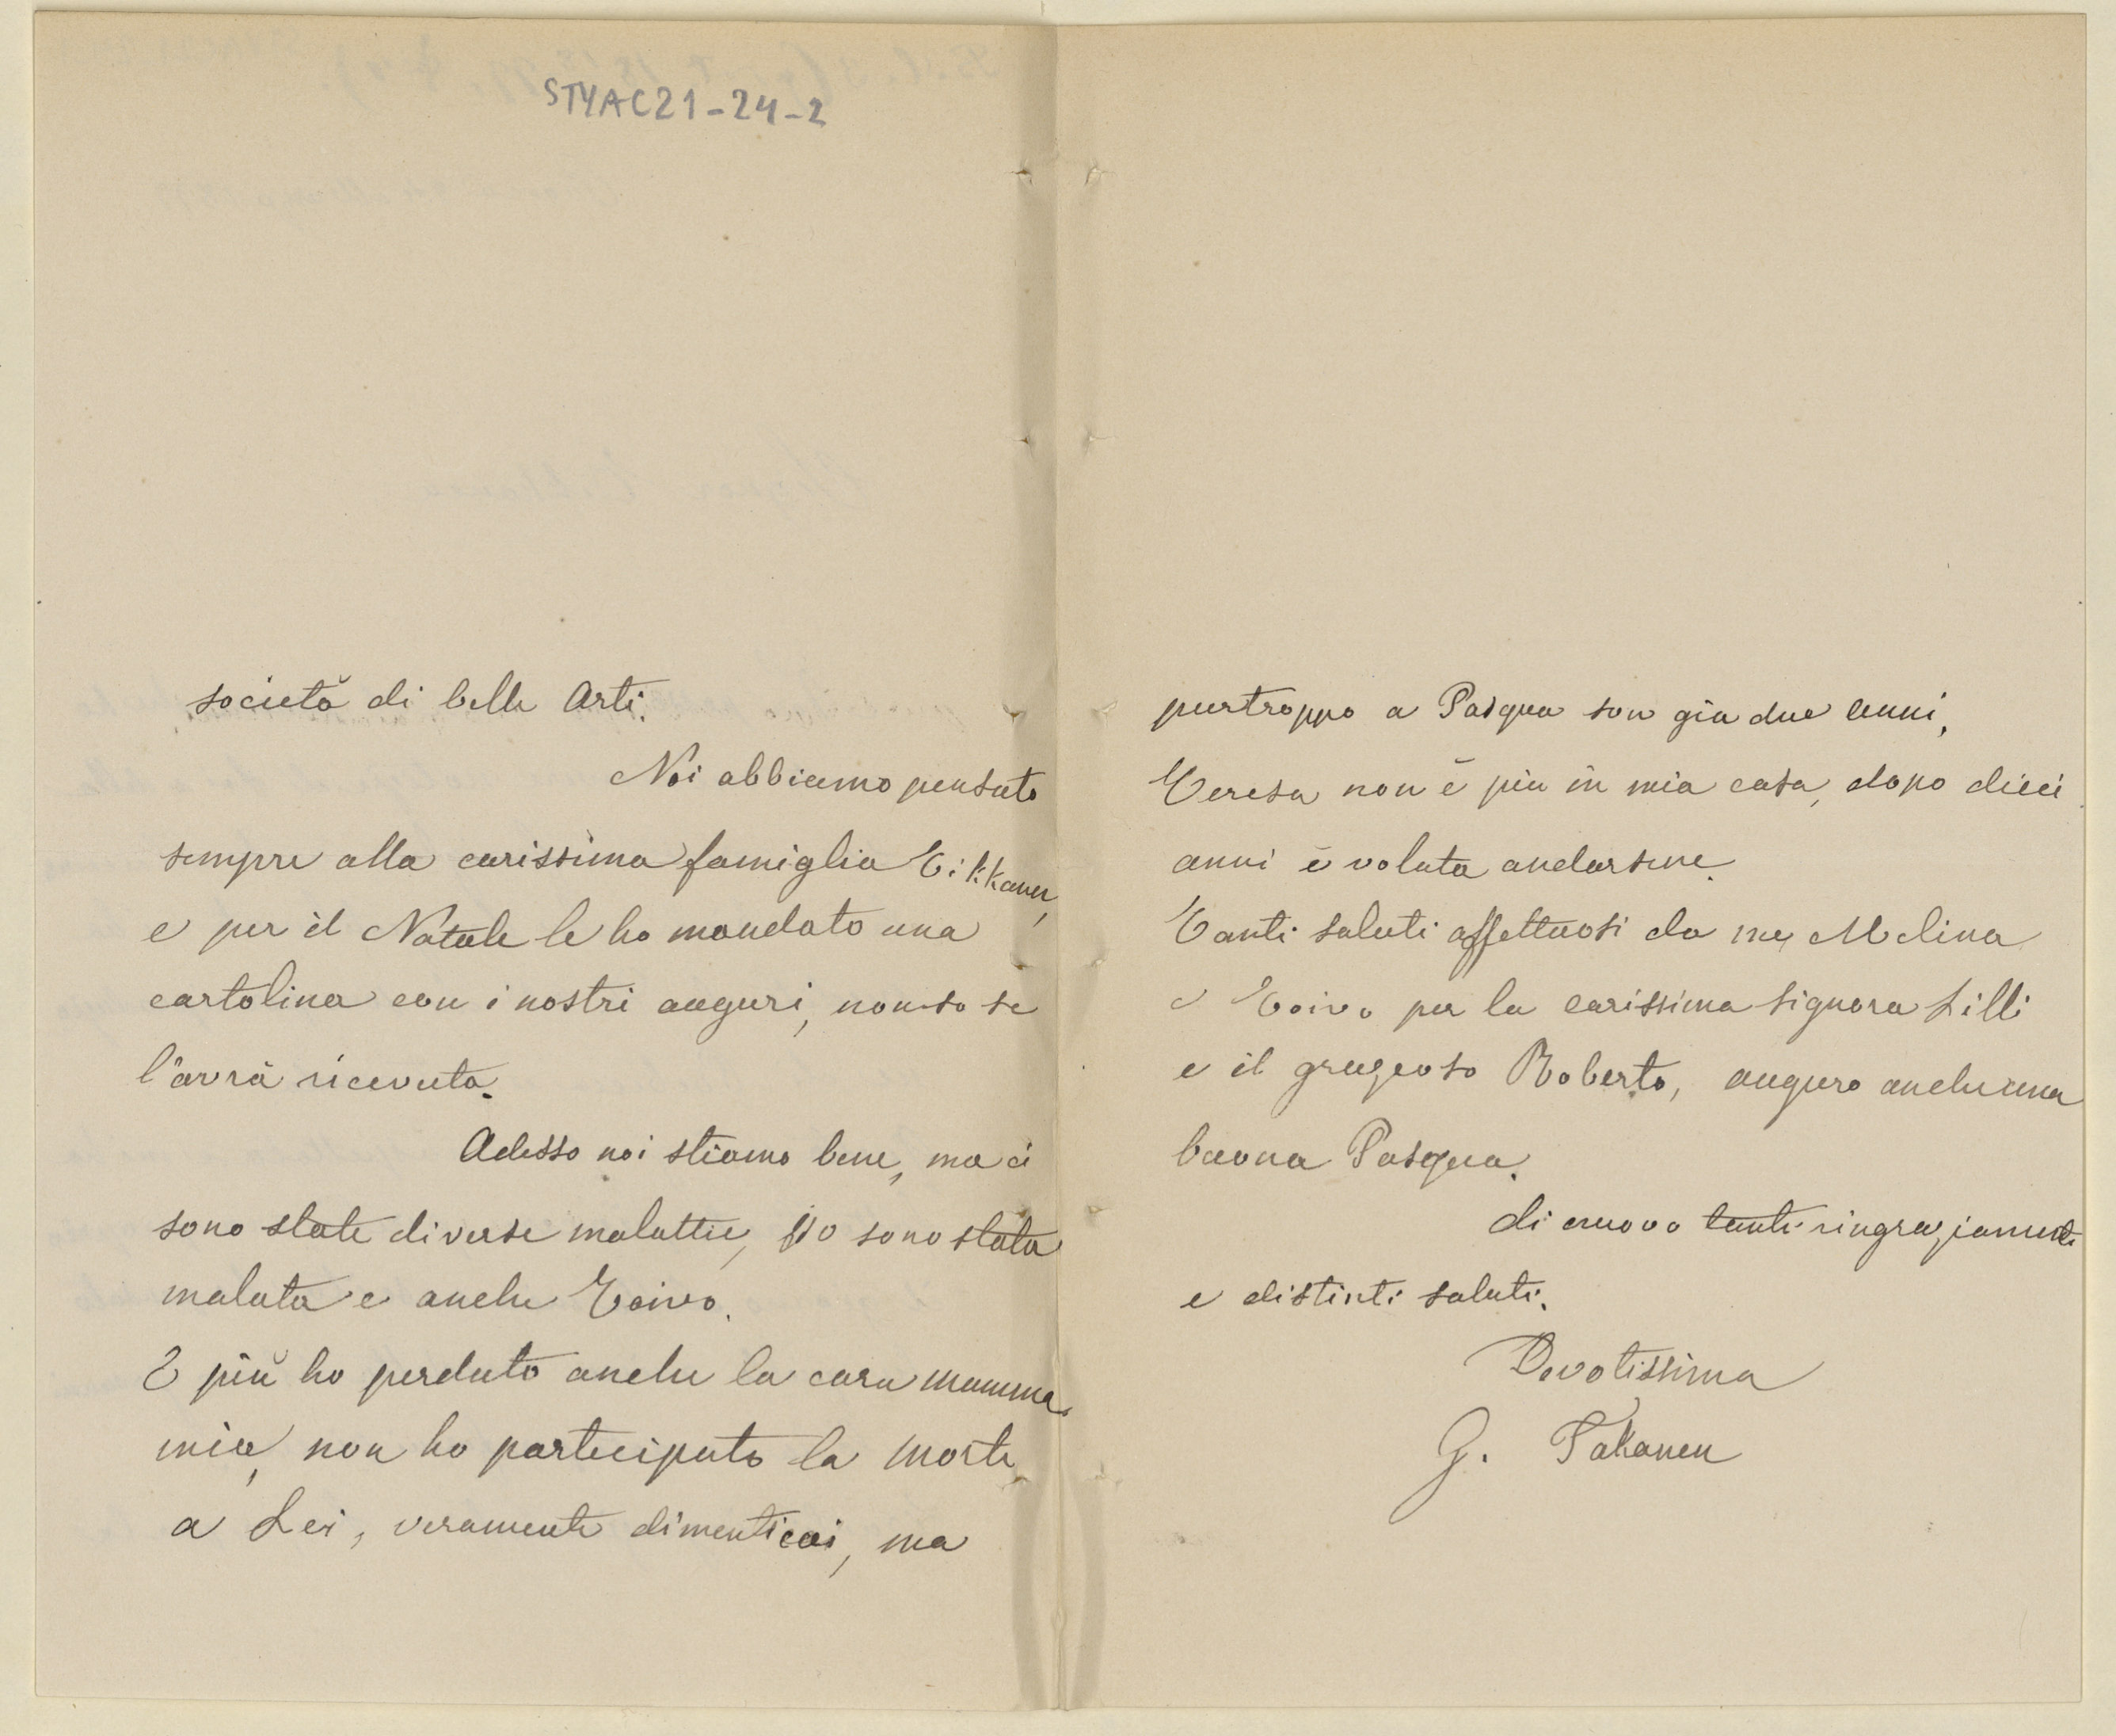 STYAC21-24-2
società di belle Arti.
Noi abbiamo pensato
sempre alla carissima famiglia Tikkanen,
e per il Natale le ho mandato una
cartolina con i nostri auguri, non so se
l'avrà ricevuta.
Adesso noi stiamo bene, ma ci
sono state diverse malattie, Io sono stata
malata e anche Toivo.
E più ho perduto anche la cara mamma
mia, non ho partecipato la morte
a Lei, veramente dimenticai, ma
purtroppo a Pasqua son già due anni,
Teresa non è più in mia casa, dopo dieci
anni è voluta andarsene.
Tanti saluti affettuosi da me, Melina
e Toivo per la carissima signora Lilli
e il grazioso Roberto, auguro anche una
buona Pasqua.
di nuovo tanti ringraziamenti
e distinti saluti.
Devotissima
G. Takanen